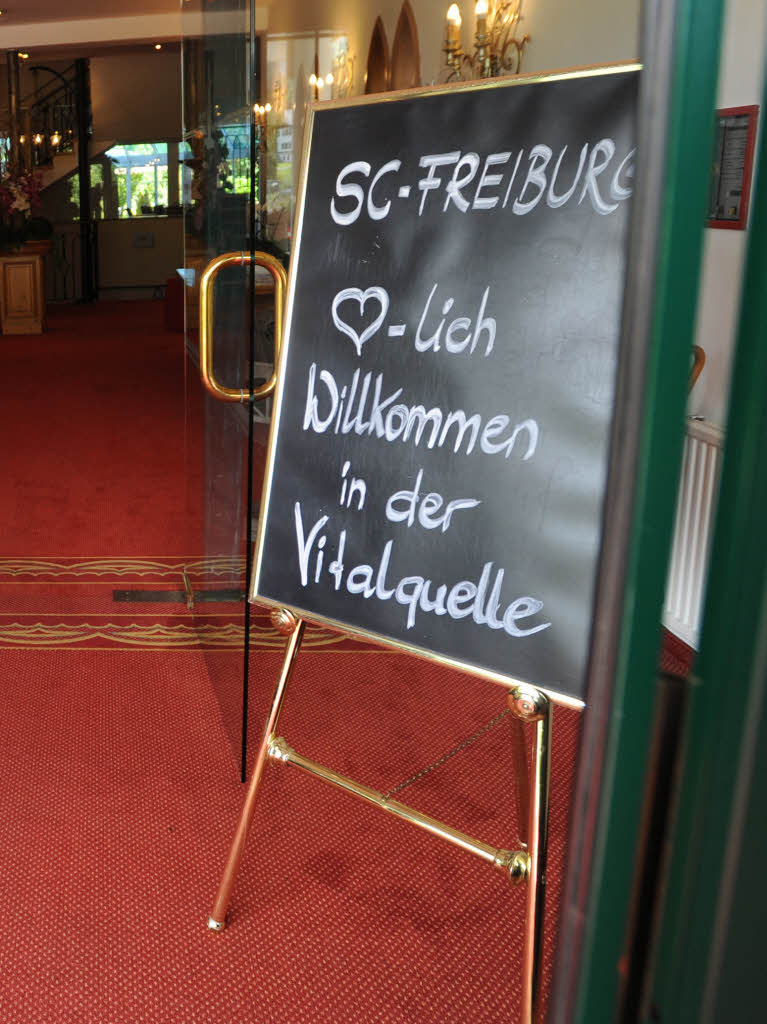 SC-FREIBURG
♡-lich
Willkommen
in der
Vitalquelle